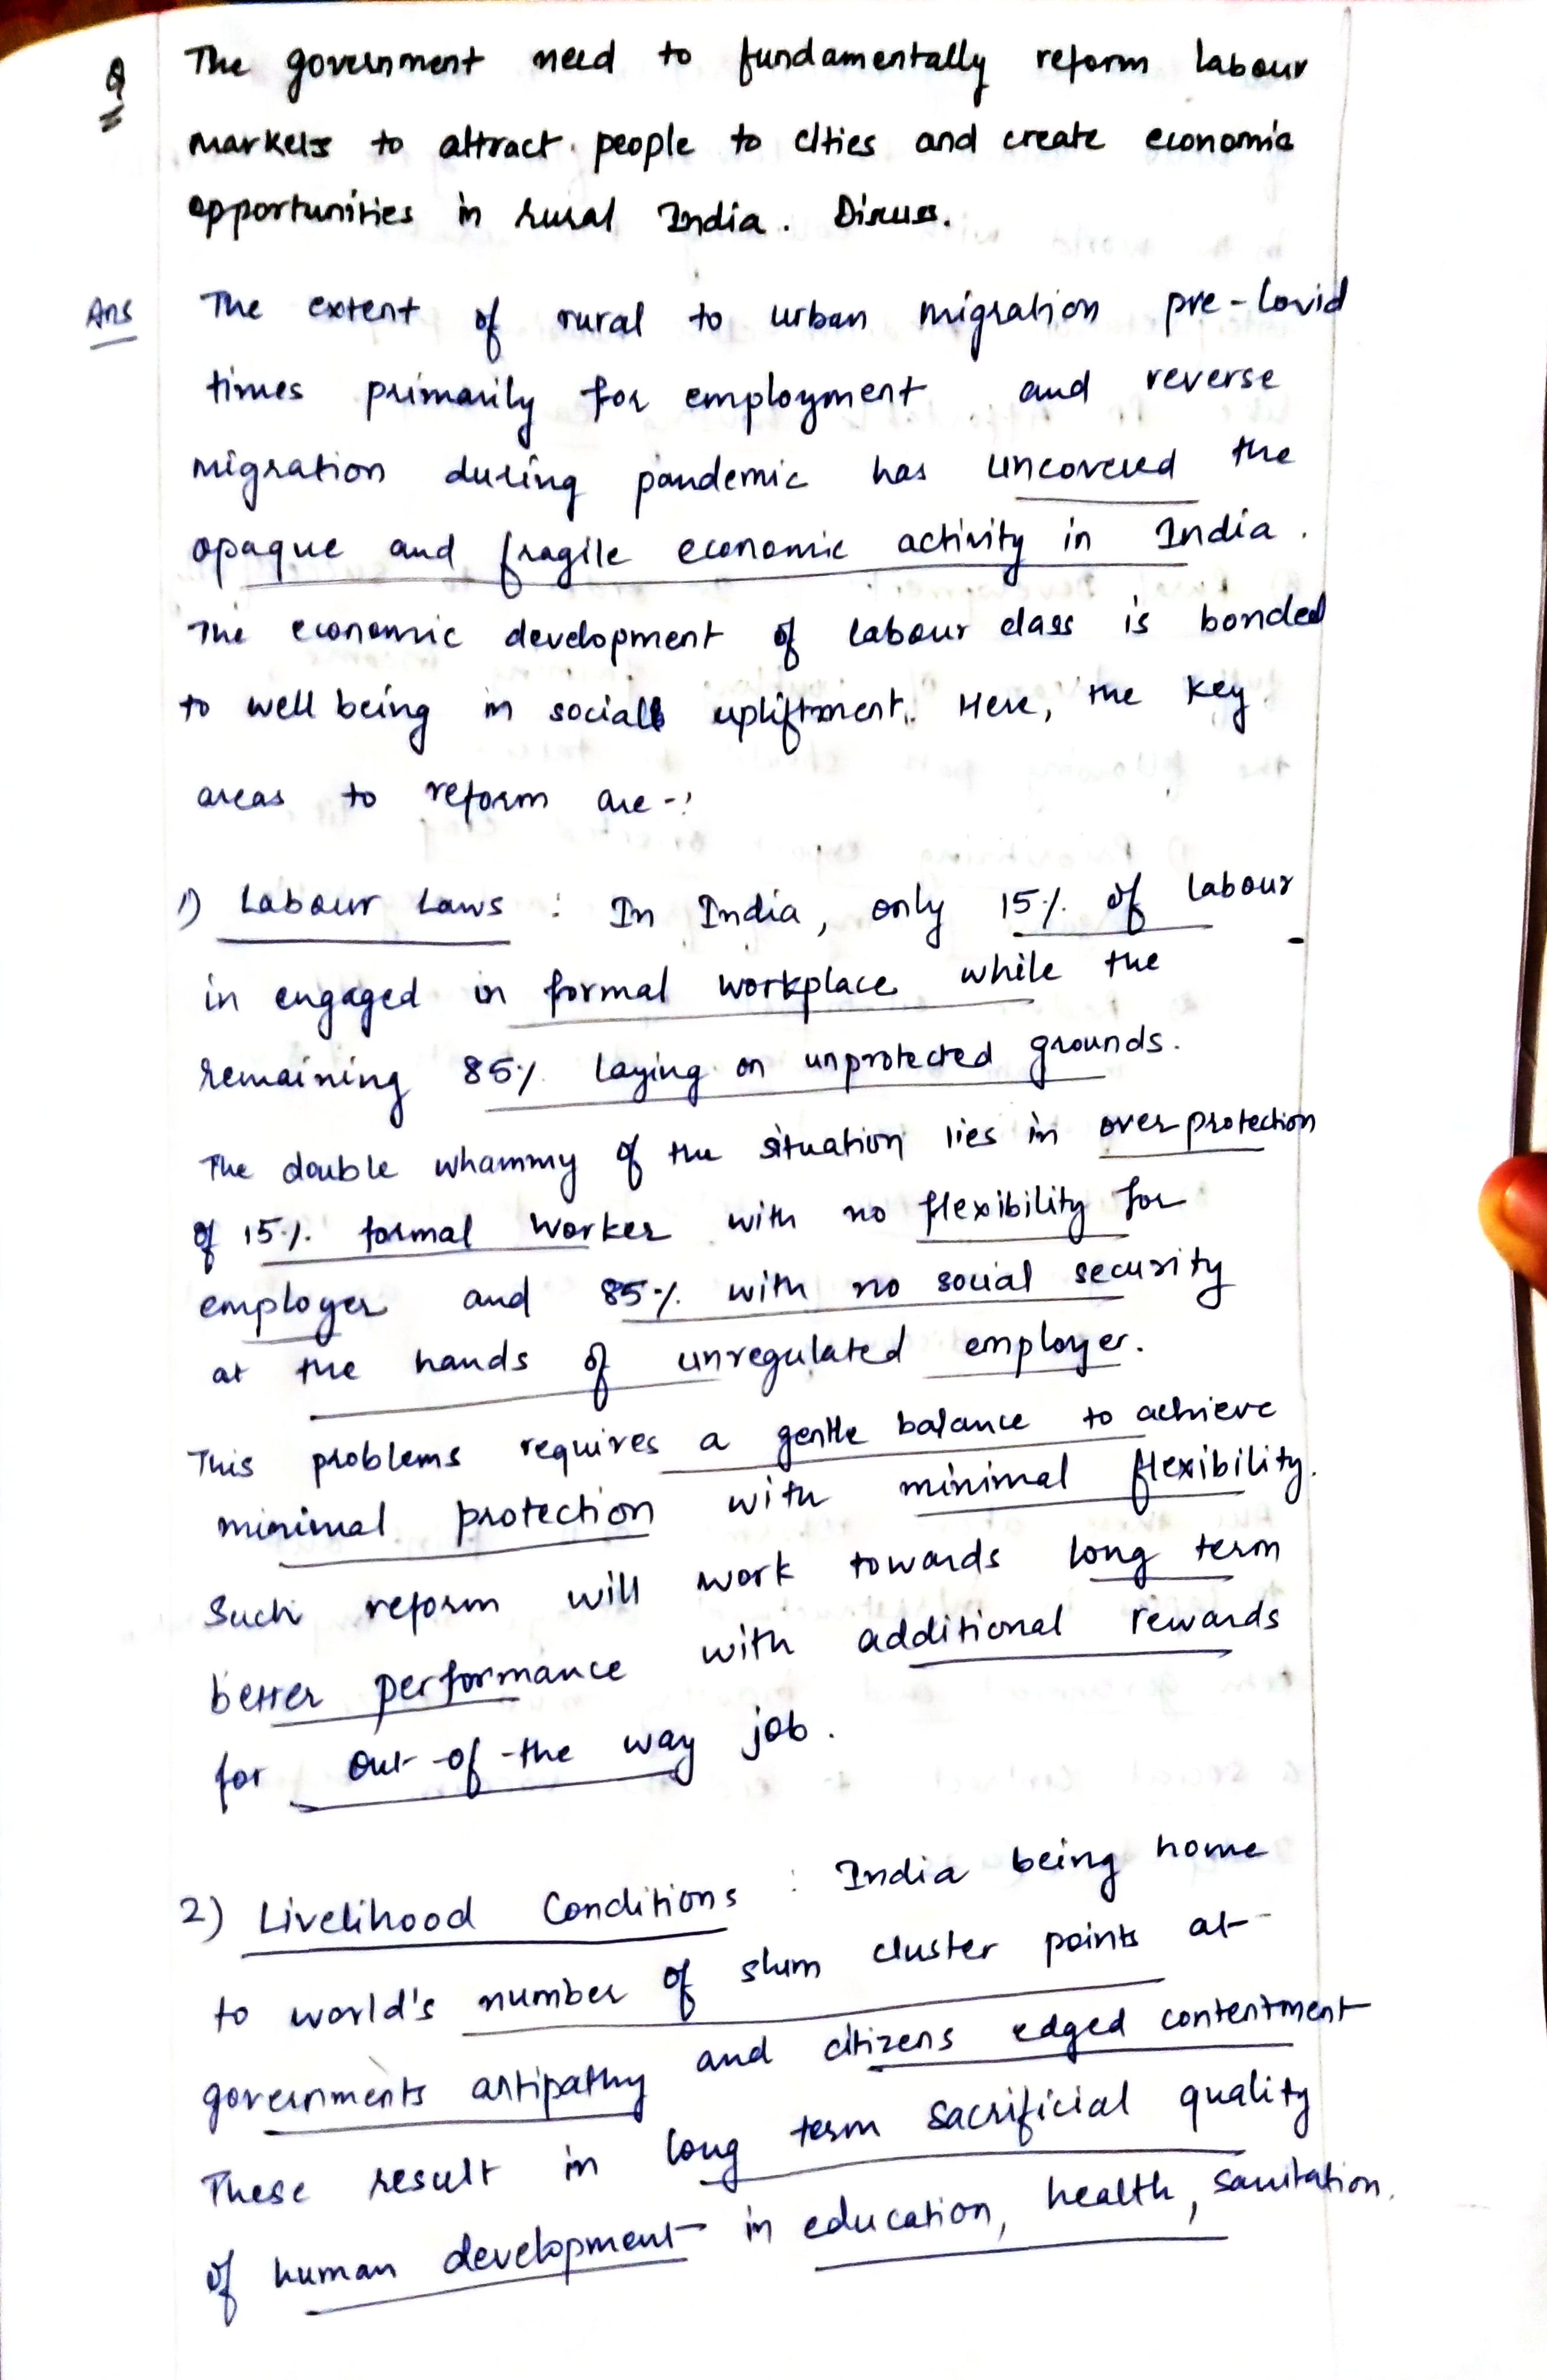 Q The government need to fundamentally reform labour
markets to attract people to cities and create economic
opportunities in rural India. Discuss.
Ans The extent of rural to urban migration pre-Covid
times primarily for employment and reverse
migration during pandemic has uncovered the
opaque and fragile economic activity in India.
The economic development of labour class is bonded
to well being in social upliftment. Here, the key
areas to reform are -:
1) Labour Laws : In India, only 15% of labour
in engaged in formal workplace while the
remaining 85% laying on unprotected grounds.
The double whammy of the situation lies in over protection
of 15% formal worker with no flexibility for
employer and 85% with no social security
at the hands of unregulated employer.
This problems requires a gentle balance to achieve
minimal protection with minimal flexibility.
Such reform will work towards long term
better performance with additional rewards
for out-of-the way job.
2) Livelihood Conditions : India being home
to world's number of slum cluster points at
governments antipathy and citizens edged contentment
These result in long term sacrificial quality
of human development in education, health, sanitation.